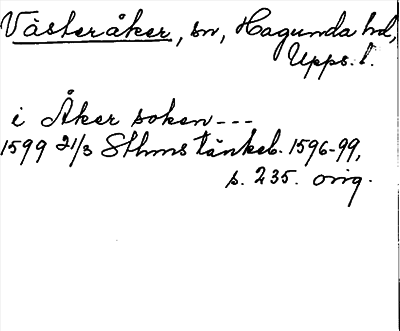 Västeråker, sn, Hagunda hd,
Upps. l.
i Åker soken ---
1599 21/3 Sthms tänkeb. 1596-99,
s. 235. orig.